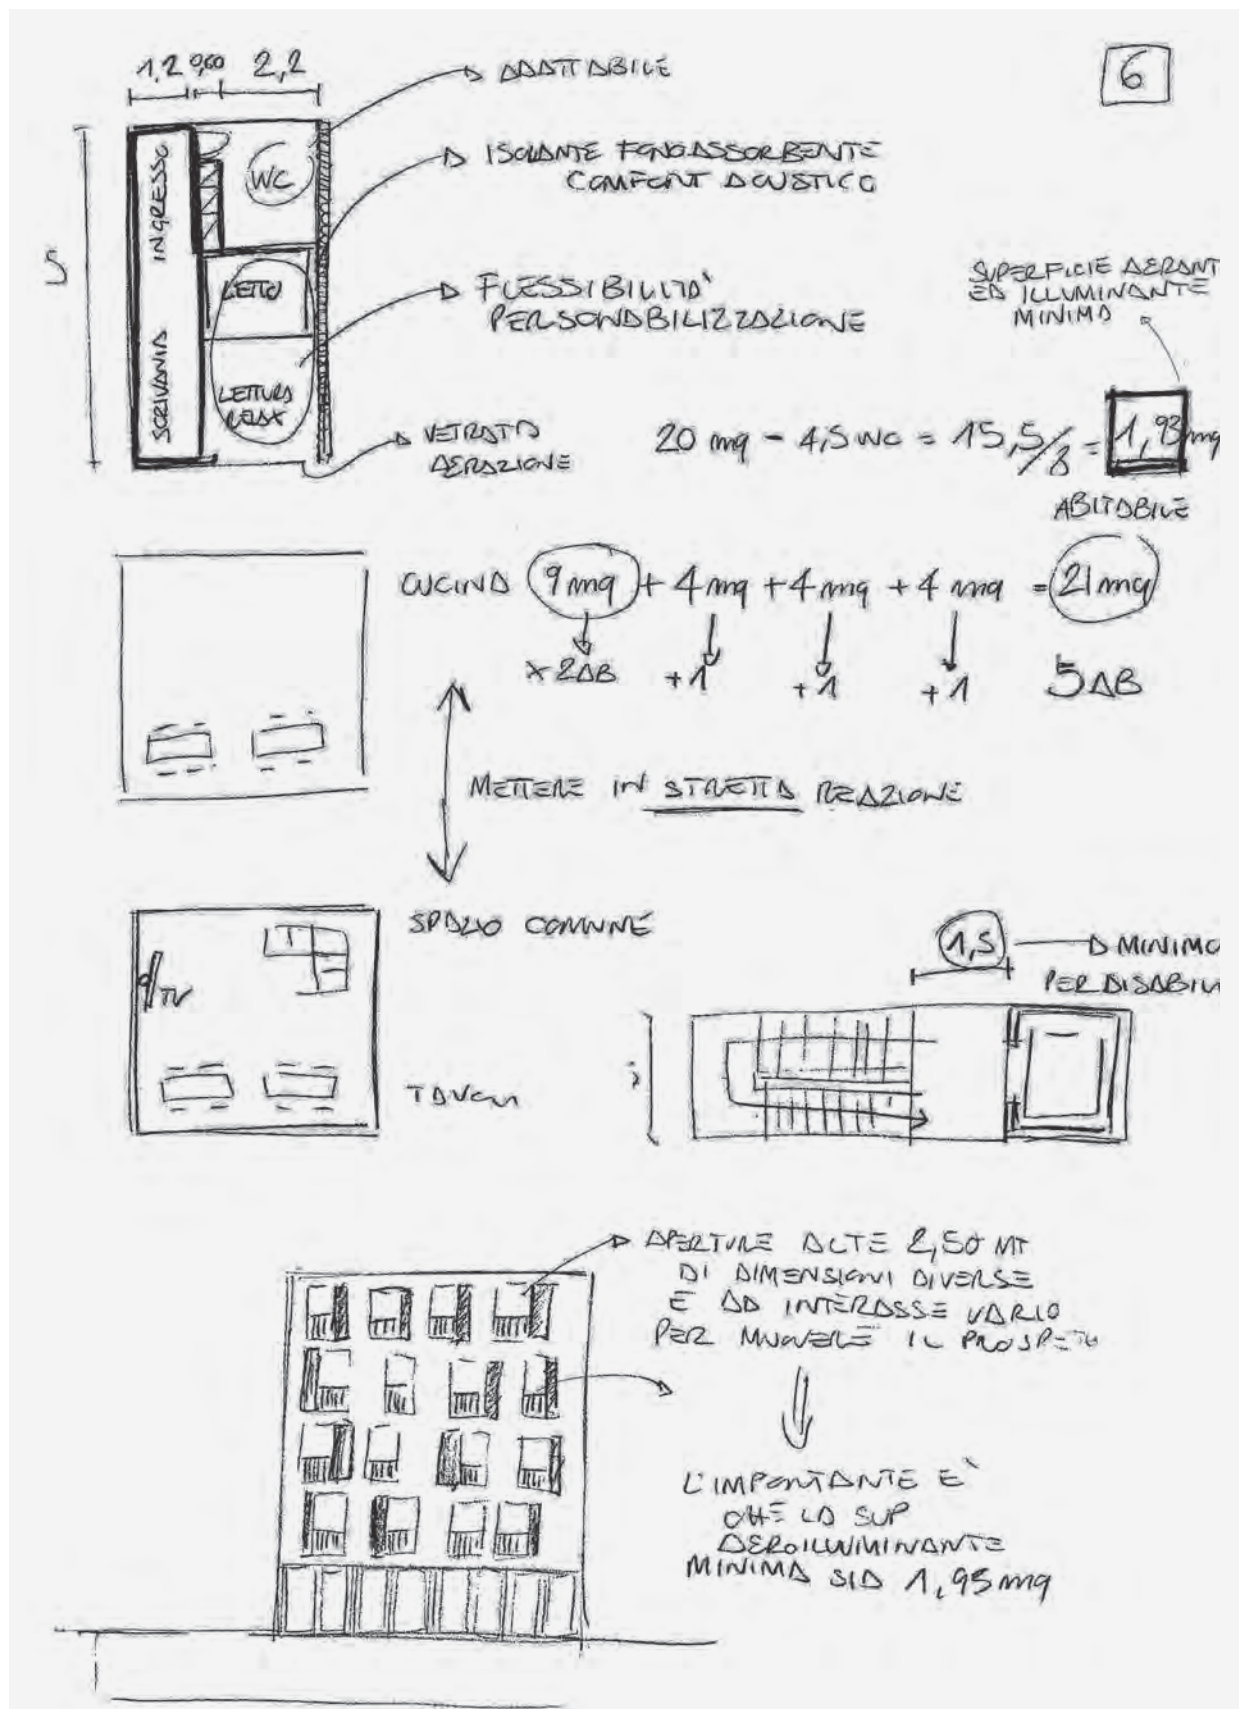 6
1,2 0,60 2,2
ADATTABILE
ISOLANTE FONOASSORBENTE
COMFORT ACUSTICO
WC
INGRESSO
5
LETTO
FLESSIBILITÀ
PERSONABILIZZAZIONE
SUPERFICIE AERANT
ED ILLUMINANTE
MINIMA
SCRIVANIA
LETTURA
RELAX
VETRATA
AERAZIONE
20 mq - 4,5 WC = 15,5/8 = 1,93 mq
ABITABILE
CUCINA 9 mq + 4 mq + 4 mq + 4 mq = 21 mq
x 2AB +1 +1 +1 5AB
METTERE IN STRETTA REAZIONE
SPAZIO COMUNE
TV
TAVOLI
1,5 MINIMO
PER DISABILI
APERTURE ALTE 2,50 MT
DI DIMENSIONI DIVERSE
E AD INTERASSE VARIO
PER MUOVERE IL PROSPETTO
L'IMPORTANTE E'
CHE LA SUP
AEROILLUMINANTE
MINIMA SIA 1,95 mq